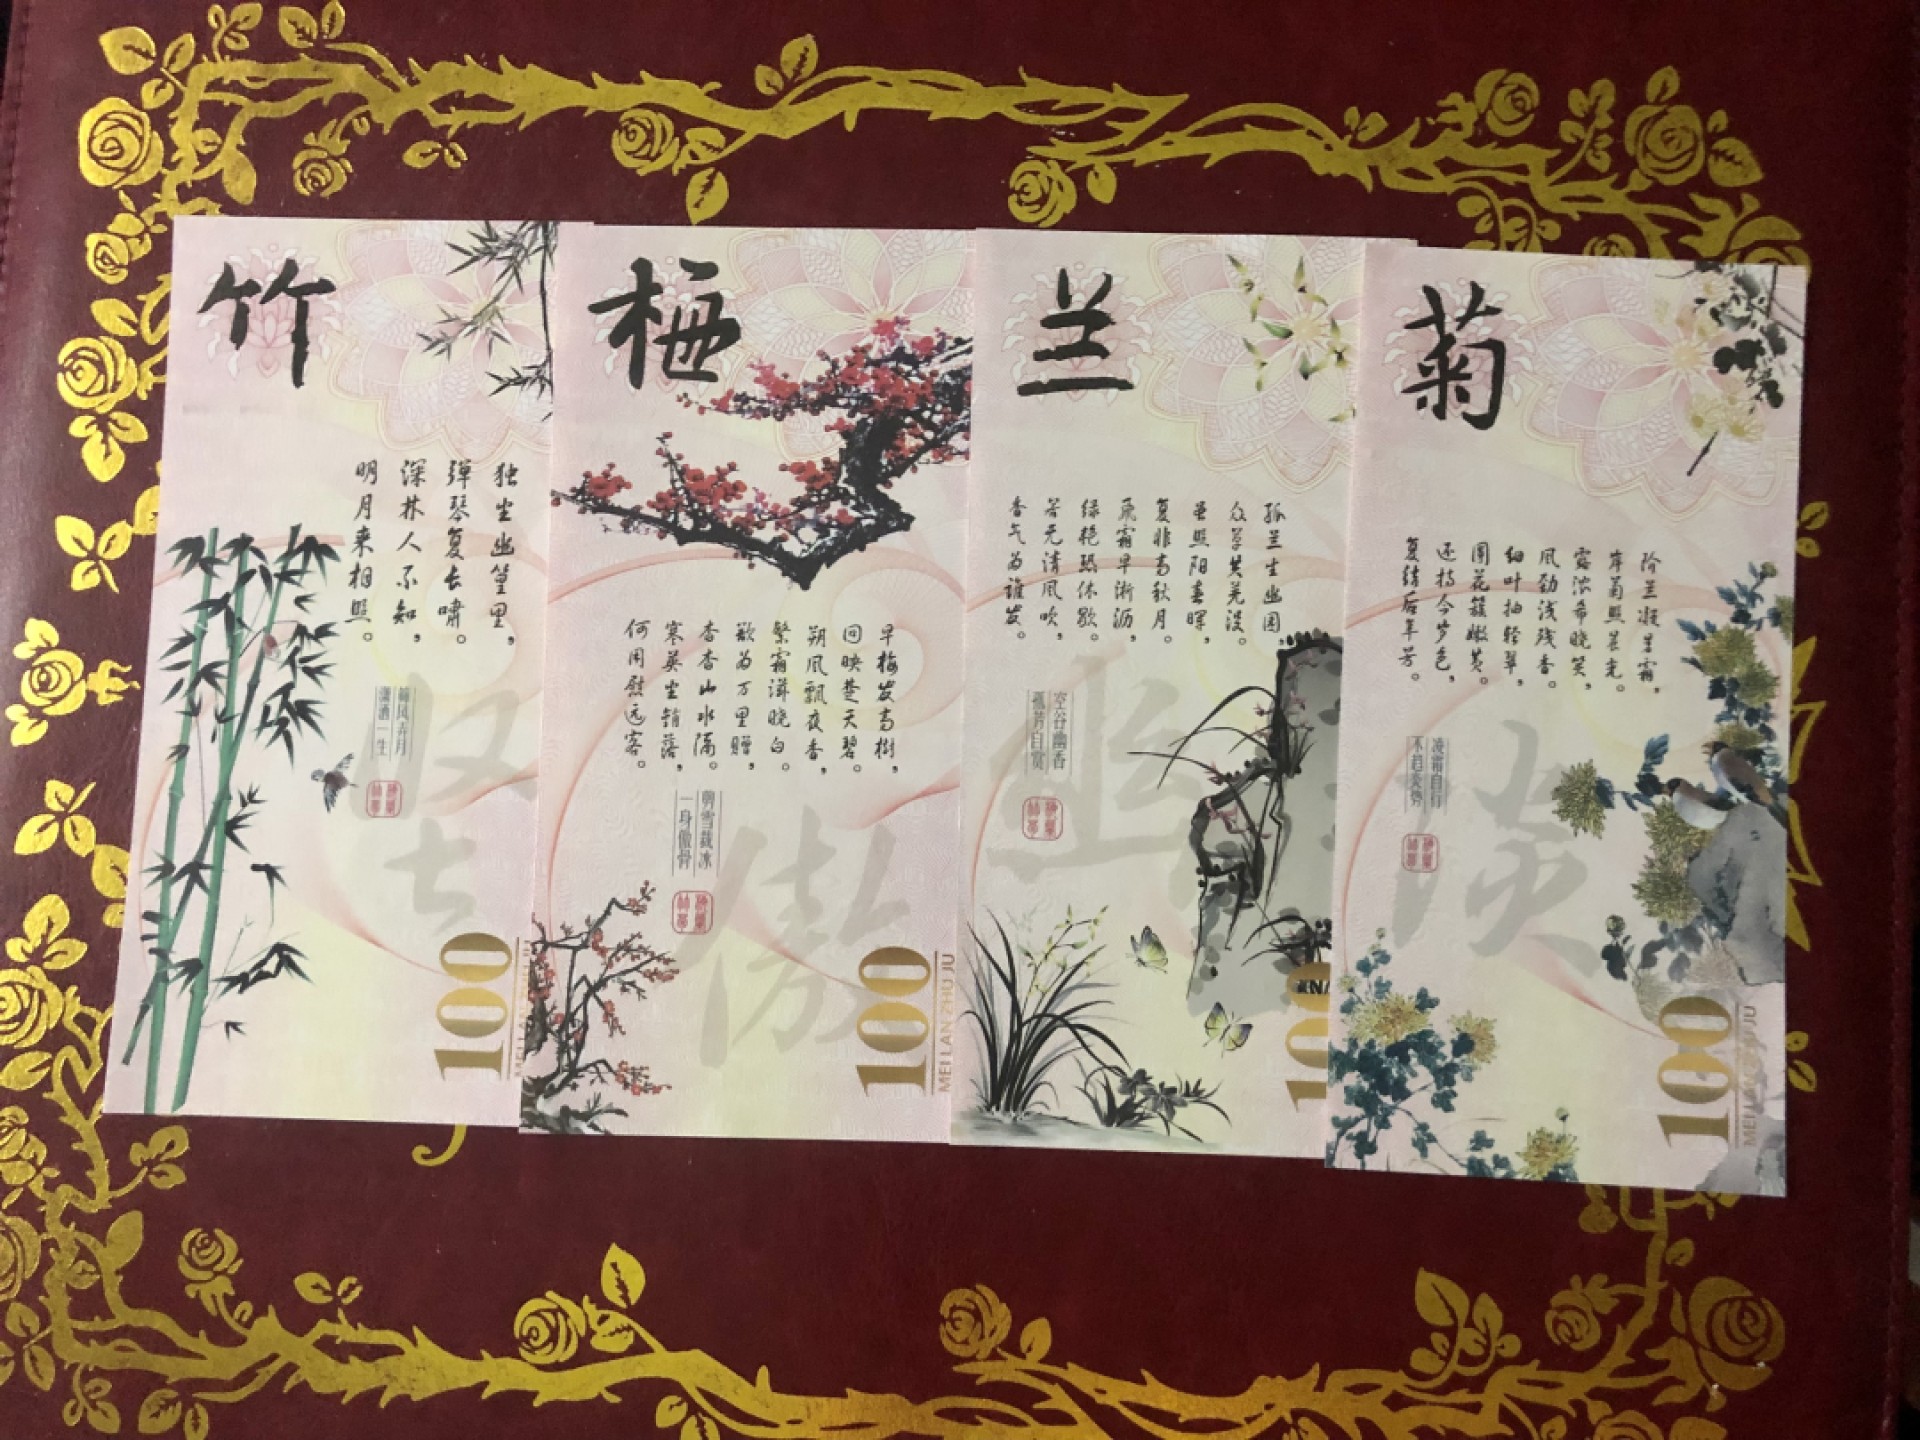 竹
独坐幽篁里，
弹琴复长啸。
深林人不知，
明月来相照。
筛风弄月
潇洒一生
坚
100
梅
早梅发高树，
回映楚天碧。
朔风飘夜香，
繁霜滋晓白。
欲为万里赠，
杳杳山水隔。
寒英坐销落，
何用慰远客。
剪雪裁冰
一身傲骨
傲
100
MEI LAN ZHU JU
兰
孤兰生幽园，
众草共芜没。
虽照阳春晖，
复非高秋月。
飞霜早淅沥，
绿艳恐休歇。
若无清风吹，
香气为谁发。
空谷幽香
孤芳自赏
幽
100
菊
阶兰凝曙霜，
岸菊照晨光。
露浓希晓笑，
风劲浅残香。
细叶抽轻翠，
圆花簇嫩黄。
还持今岁色，
复结后年芳。
凌霜自行
不趋炎势
淡
100
MEI LAN ZHU JU